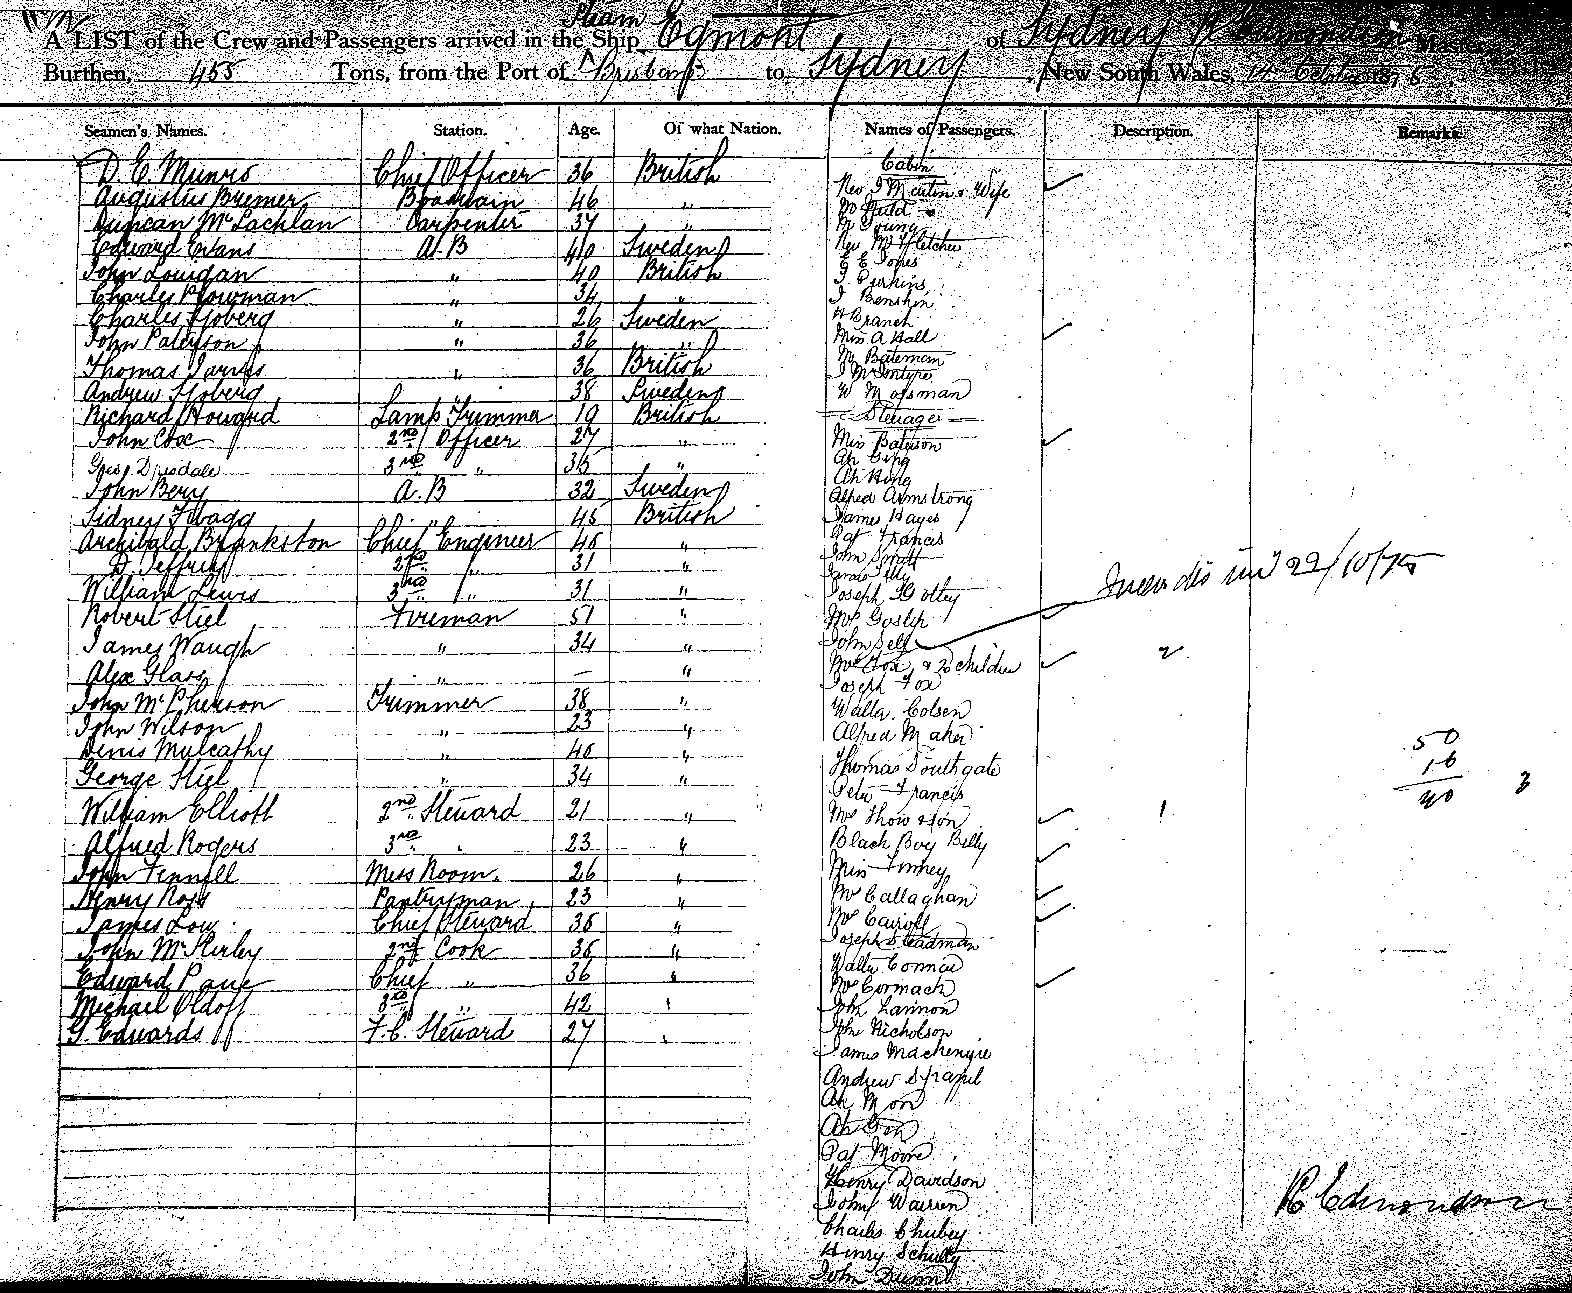 A LIST of the Crew and Passengers arrived in the Ship Steam Egmont of Sydney R Edmondson Master,
Burthen, 455 Tons, from the Port of Brisbane to Sydney New South Wales, 14 October 1875
Seamen's Names. Station. Age. Of what Nation.
D. E. Munro Chief Officer 36 British
Augustus Bremer Boatswain 46 "
Duncan McLachlan Carpenter 37 "
Edward Evans A.B 40 Sweden
John Lourgan " 40 British
Charles Plowman " 34 "
Charles Sjoberg " 26 Sweden
John Paterson " 36 "
Thomas Jarvis " 36 British
Andrew Sjoberg " 38 Sweden
Richard Howard Lamp Trimmer 19 British
John Cox 2nd Officer 27 "
Geo. Drysdale 3rd " 35 "
John Bery A.B 32 Sweden
Sidney Twagg " 45 British
Archibald Brankston Chief Engineer 45 "
D. Jeffrey 2nd " 31 "
William Lewis 3rd " 31 "
Robert Stiel Fireman 51 "
James Waugh " 34 "
Alex Glass " — "
John McPherson Trimmer 38 "
John Wilson " 23 "
Denis Mulcathy " 40 "
George Stiel " 34 "
William Elliott 2nd Steward 21 "
Alfred Rogers 3rd " 23 "
John Fennell Mess Room 26 "
Henry Ross Pantryman 23 "
James Low Chief Steward 35 "
John McStirley 2nd Cook 35 "
Edward Pane Chief " 36 "
Michael Oldoff 3rd " 42 "
G. Edwards F.C. Steward 27 "
Names of Passengers. Description. Remarks.
Cabin
Rev J Martin & Wife
M Auld
M Young
Rev Mr Fletcher
G E Jones
J Perkins
J Benskin
H Branch
Miss A Hall
M Bateman
J McIntyre
W Mossman
Steerage
Miss Bateson
Ah Ching
Ah Hong
Alfred Armstrong
James Hayes
Pat Francis
John Smith
James
Joseph Holtey
Mrs Goslip
John Sell
Mrs Fox & 2 children 2
Joseph Fox
Walter Colsen
Alfred Maher
Thomas Southgate
Peter Francis
Mrs Show & Son 1
Black Boy Billy
Miss Finney
Mrs Callaghan
Mrs Carroll
Joseph Steadman
Walter Connor
Mrs Cormack
John Lannon
John Nicholson
James Mackenzie
Andrew
Ah Mon
Ah Gon
Pat Moore
Henry Davidson
John Warren
Charles Chubey
Henry Schultz
John Dunn
22/10/75
50
10
40
3
R Edmondson